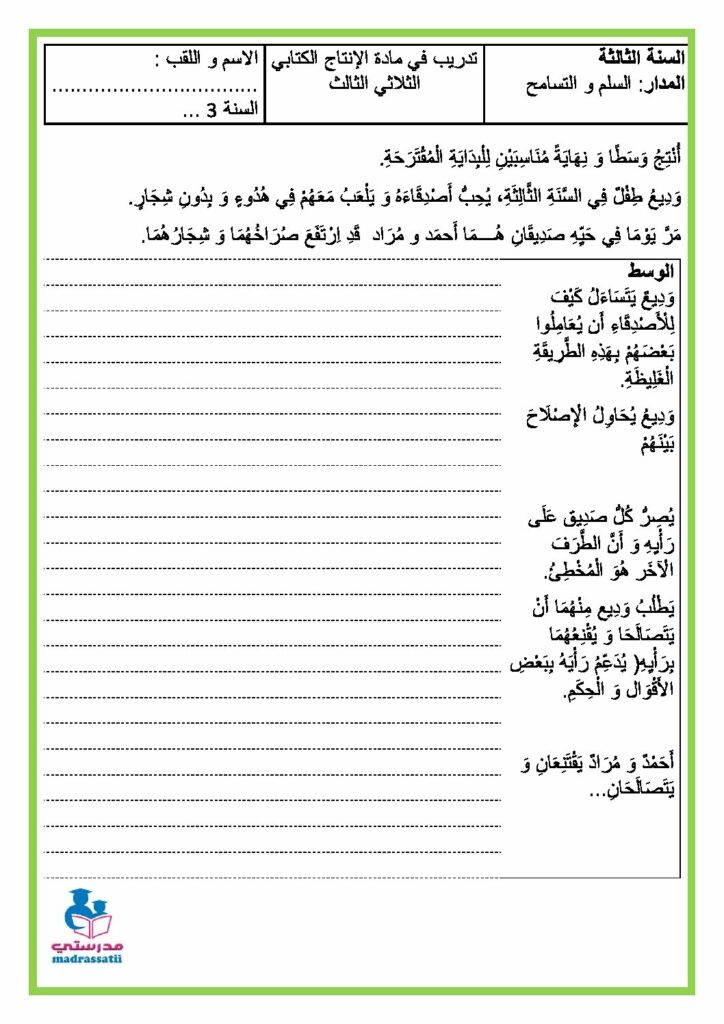 السنة الثالثة
المدار: السلم و التسامح
تدريب في مادة الإنتاج الكتابي
الثلاثي الثالث
الاسم و اللقب :
..................................
السنة 3 ...
أُنْتِجُ وَسَطًا وَ نِهَايَةً مُنَاسِبَيْنِ لِلْبِدَايَةِ الْمُقْتَرَحَةِ.
وَدِيعُ طِفْلٌ فِي السَّنَةِ الثَّالِثَةِ، يُحِبُّ أَصْدِقَاءَهُ وَ يَلْعَبُ مَعَهُمْ فِي هُدُوءٍ وَ بِدُونِ شِجَارٍ.
مَرَّ يَوْمًا فِي حَيِّهِ صَدِيقَانِ هُـــمَا أَحمَد و مُرَاد قَدِ اِرْتَفَعَ صُرَاخُهُمَا وَ شِجَارُهُمَا.
الوسط
وَدِيعٌ يَتَسَاءَلُ كَيْفَ
لِلْأَصْدِقَاءِ أَن يُعَامِلُوا
بَعْضَهُمْ بِهَذِهِ الطَّرِيقَةِ
الْغَلِيظَةِ.
وَدِيعُ يُحَاوِلُ الْإِصْلَاحَ
بَيْنَهُمْ
يُصِرُّ كُلُّ صَدِيق عَلَى
رَأْيِهِ وَ أَنَّ الطَّرَفَ
الْآخَر هُوَ الْمُخْطِئُ.
يَطْلُبُ وَدِيع مِنْهُمَا أَنْ
يَتَصَالَحَا وَ يُقْنِعُهُمَا
بِرَأْيِهِ( يُدَعِّمُ رَأْيَهُ بِبَعْضِ
الأَقْوَال وَ الْحِكَمِ.
أَحَمْدٌ وَ مُرَادٌ يَقْتَنِعَانِ وَ
يَتَصَالَحَانِ...
مدرستي
madrassatii